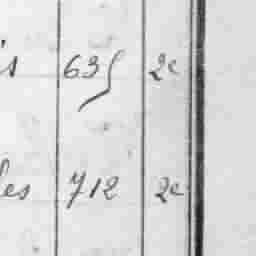 is 635 2e
les 712 2e